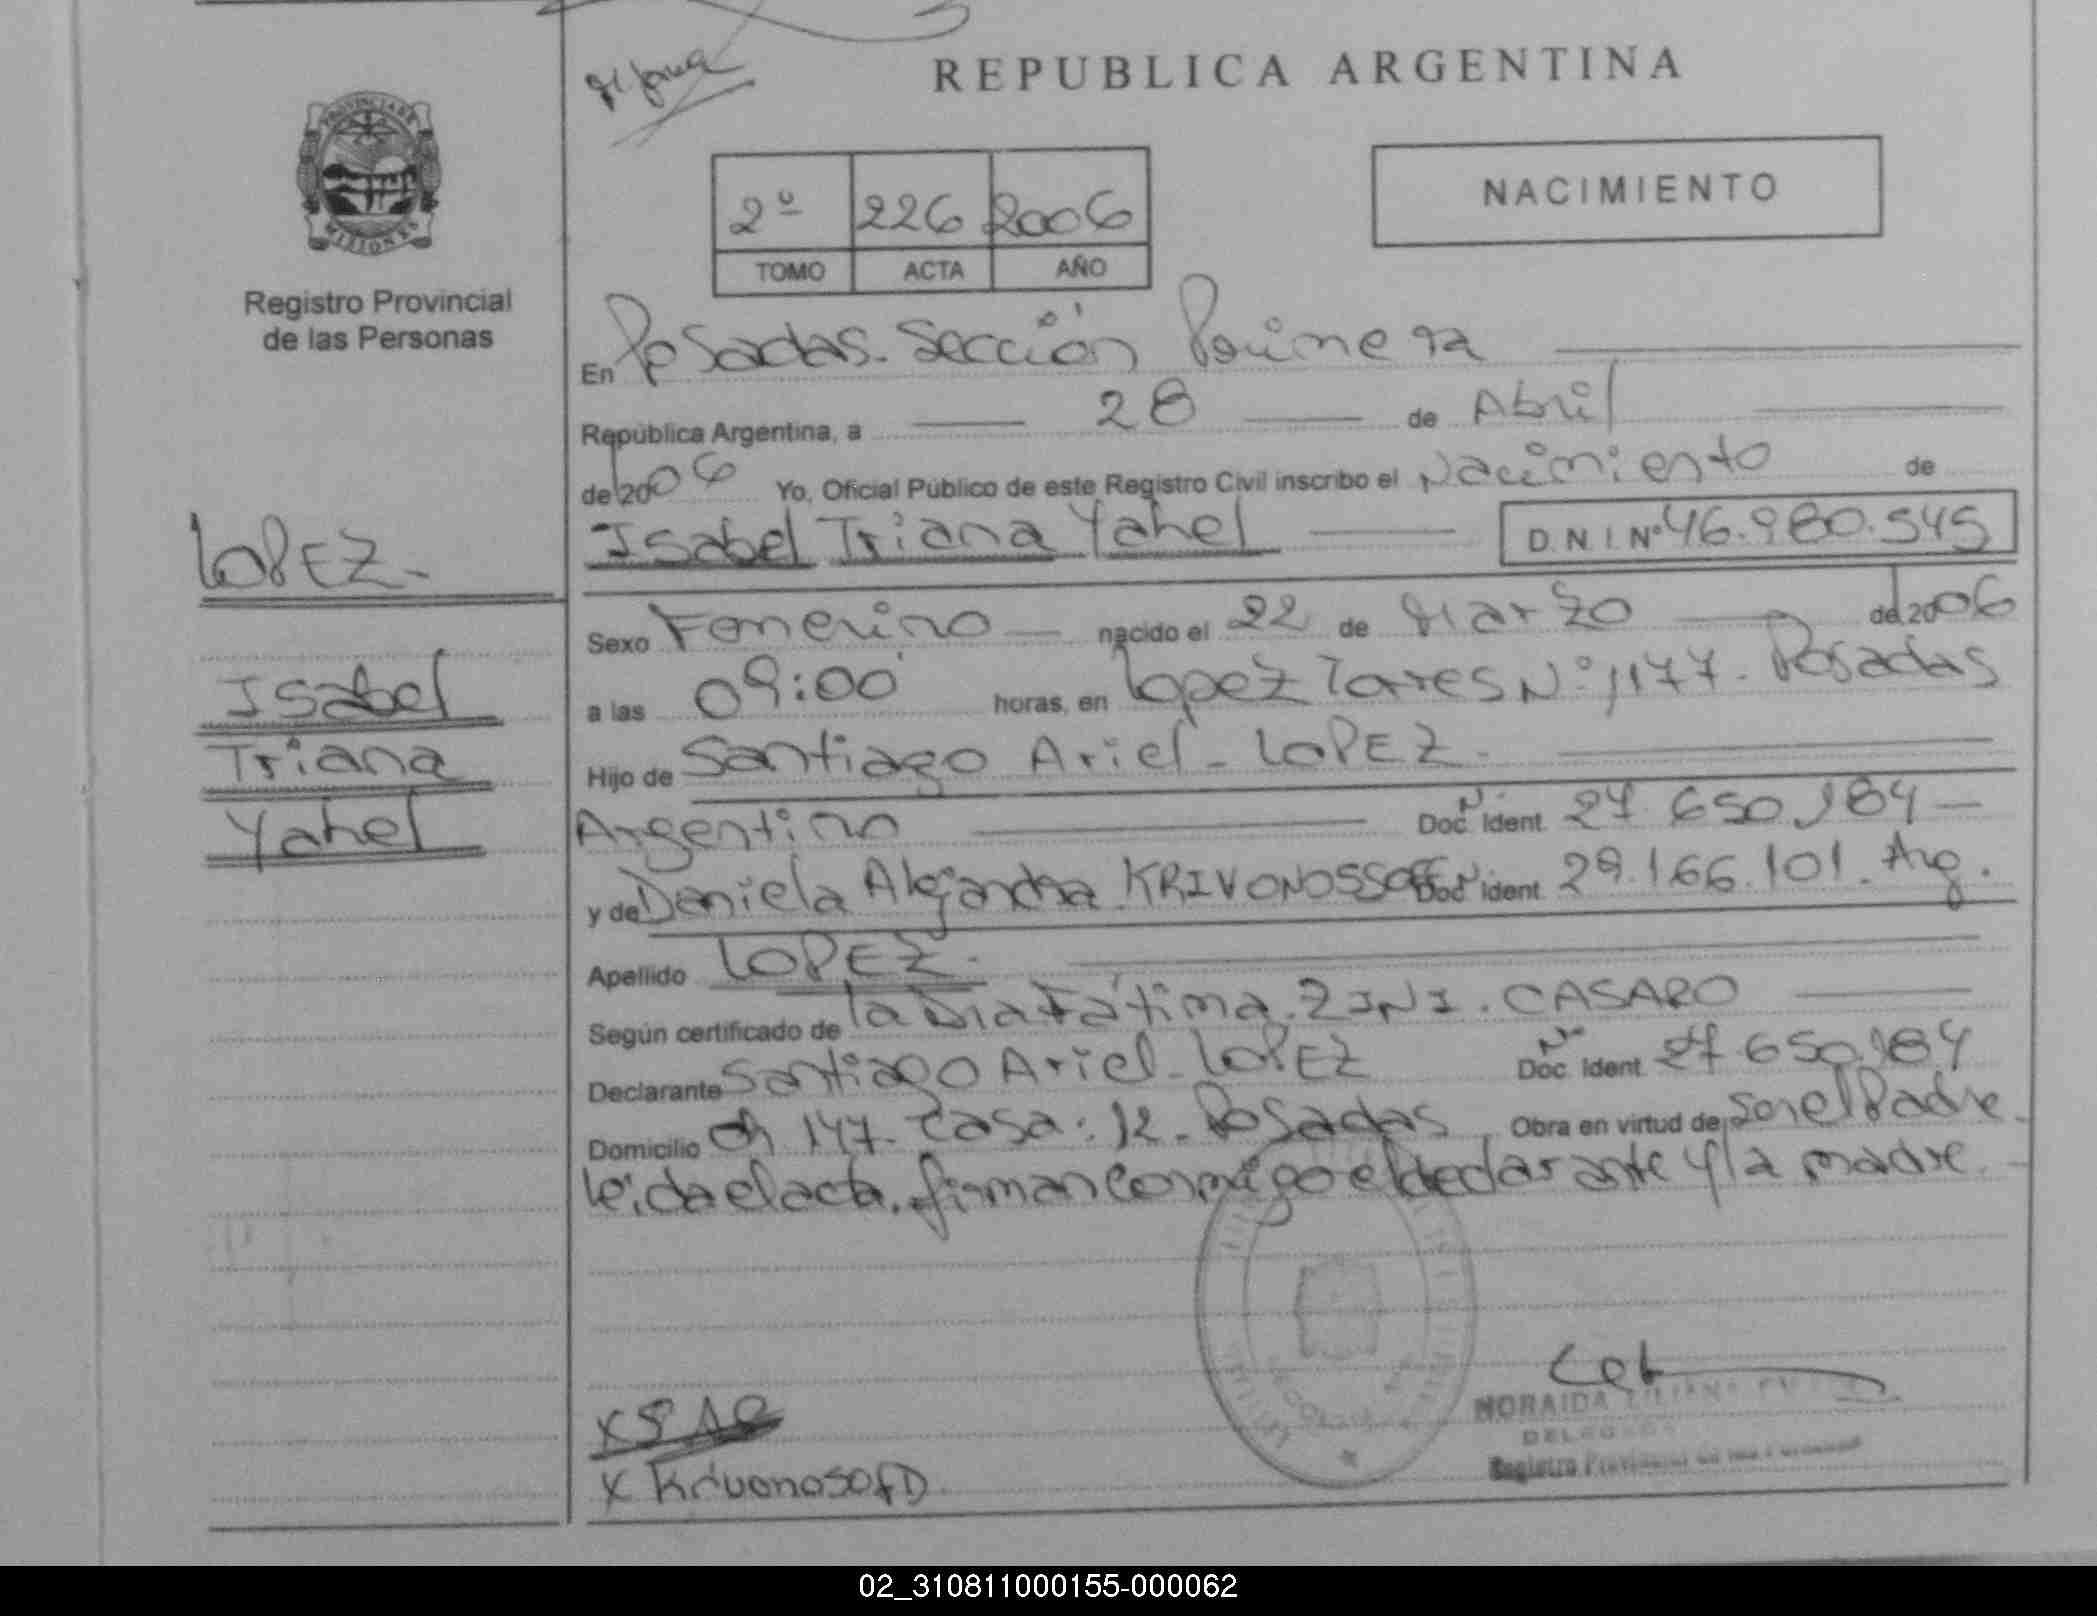 REPUBLICA ARGENTINA
PROVINCIA DE
MISIONES
Registro Provincial
de las Personas
2º 226 2006
TOMO ACTA AÑO
NACIMIENTO
En Posadas. Sección Primera
República Argentina, a 28 de Abril
de 2006 Yo, Oficial Público de este Registro Civil inscribo el Nacimiento de
Isabel Triana Yahel D.N.I. Nº 46.980.545
LOPEZ.
Isabel
Triana
Yahel
Sexo Femenino nacido el 22 de Marzo de 2006
a las 09:00 horas, en Lopez Torres Nº 1177. Posadas
Hijo de Santiago Ariel - LOPEZ.
Argentino Doc. Ident. 27.650.184
y de Daniela Alejandra KRIVONOSSOFF Doc. Ident. 29.166.101. Arg.
Apellido LOPEZ.
Según certificado de la Dra Fátima. ZINI. CASARO
Declarante Santiago Ariel - LOPEZ Doc. Ident. 27.650.184
Domicilio Ch 147. Casa: 12. Posadas Obra en virtud de Ser el Padre.
leida el acta. firman conmigo el declarante y la madre.
NORAIDA LILIANA
DELEGADA
Registro Provincial de las Personas
X Krivonosoff D
02_310811000155-000062